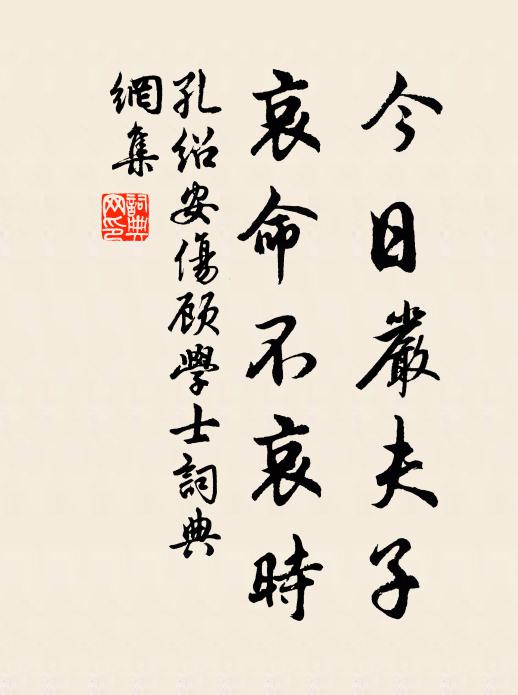 今日嚴夫子
哀命不哀時
孔紹安傷顧學士詞典
網集
詞典
网印